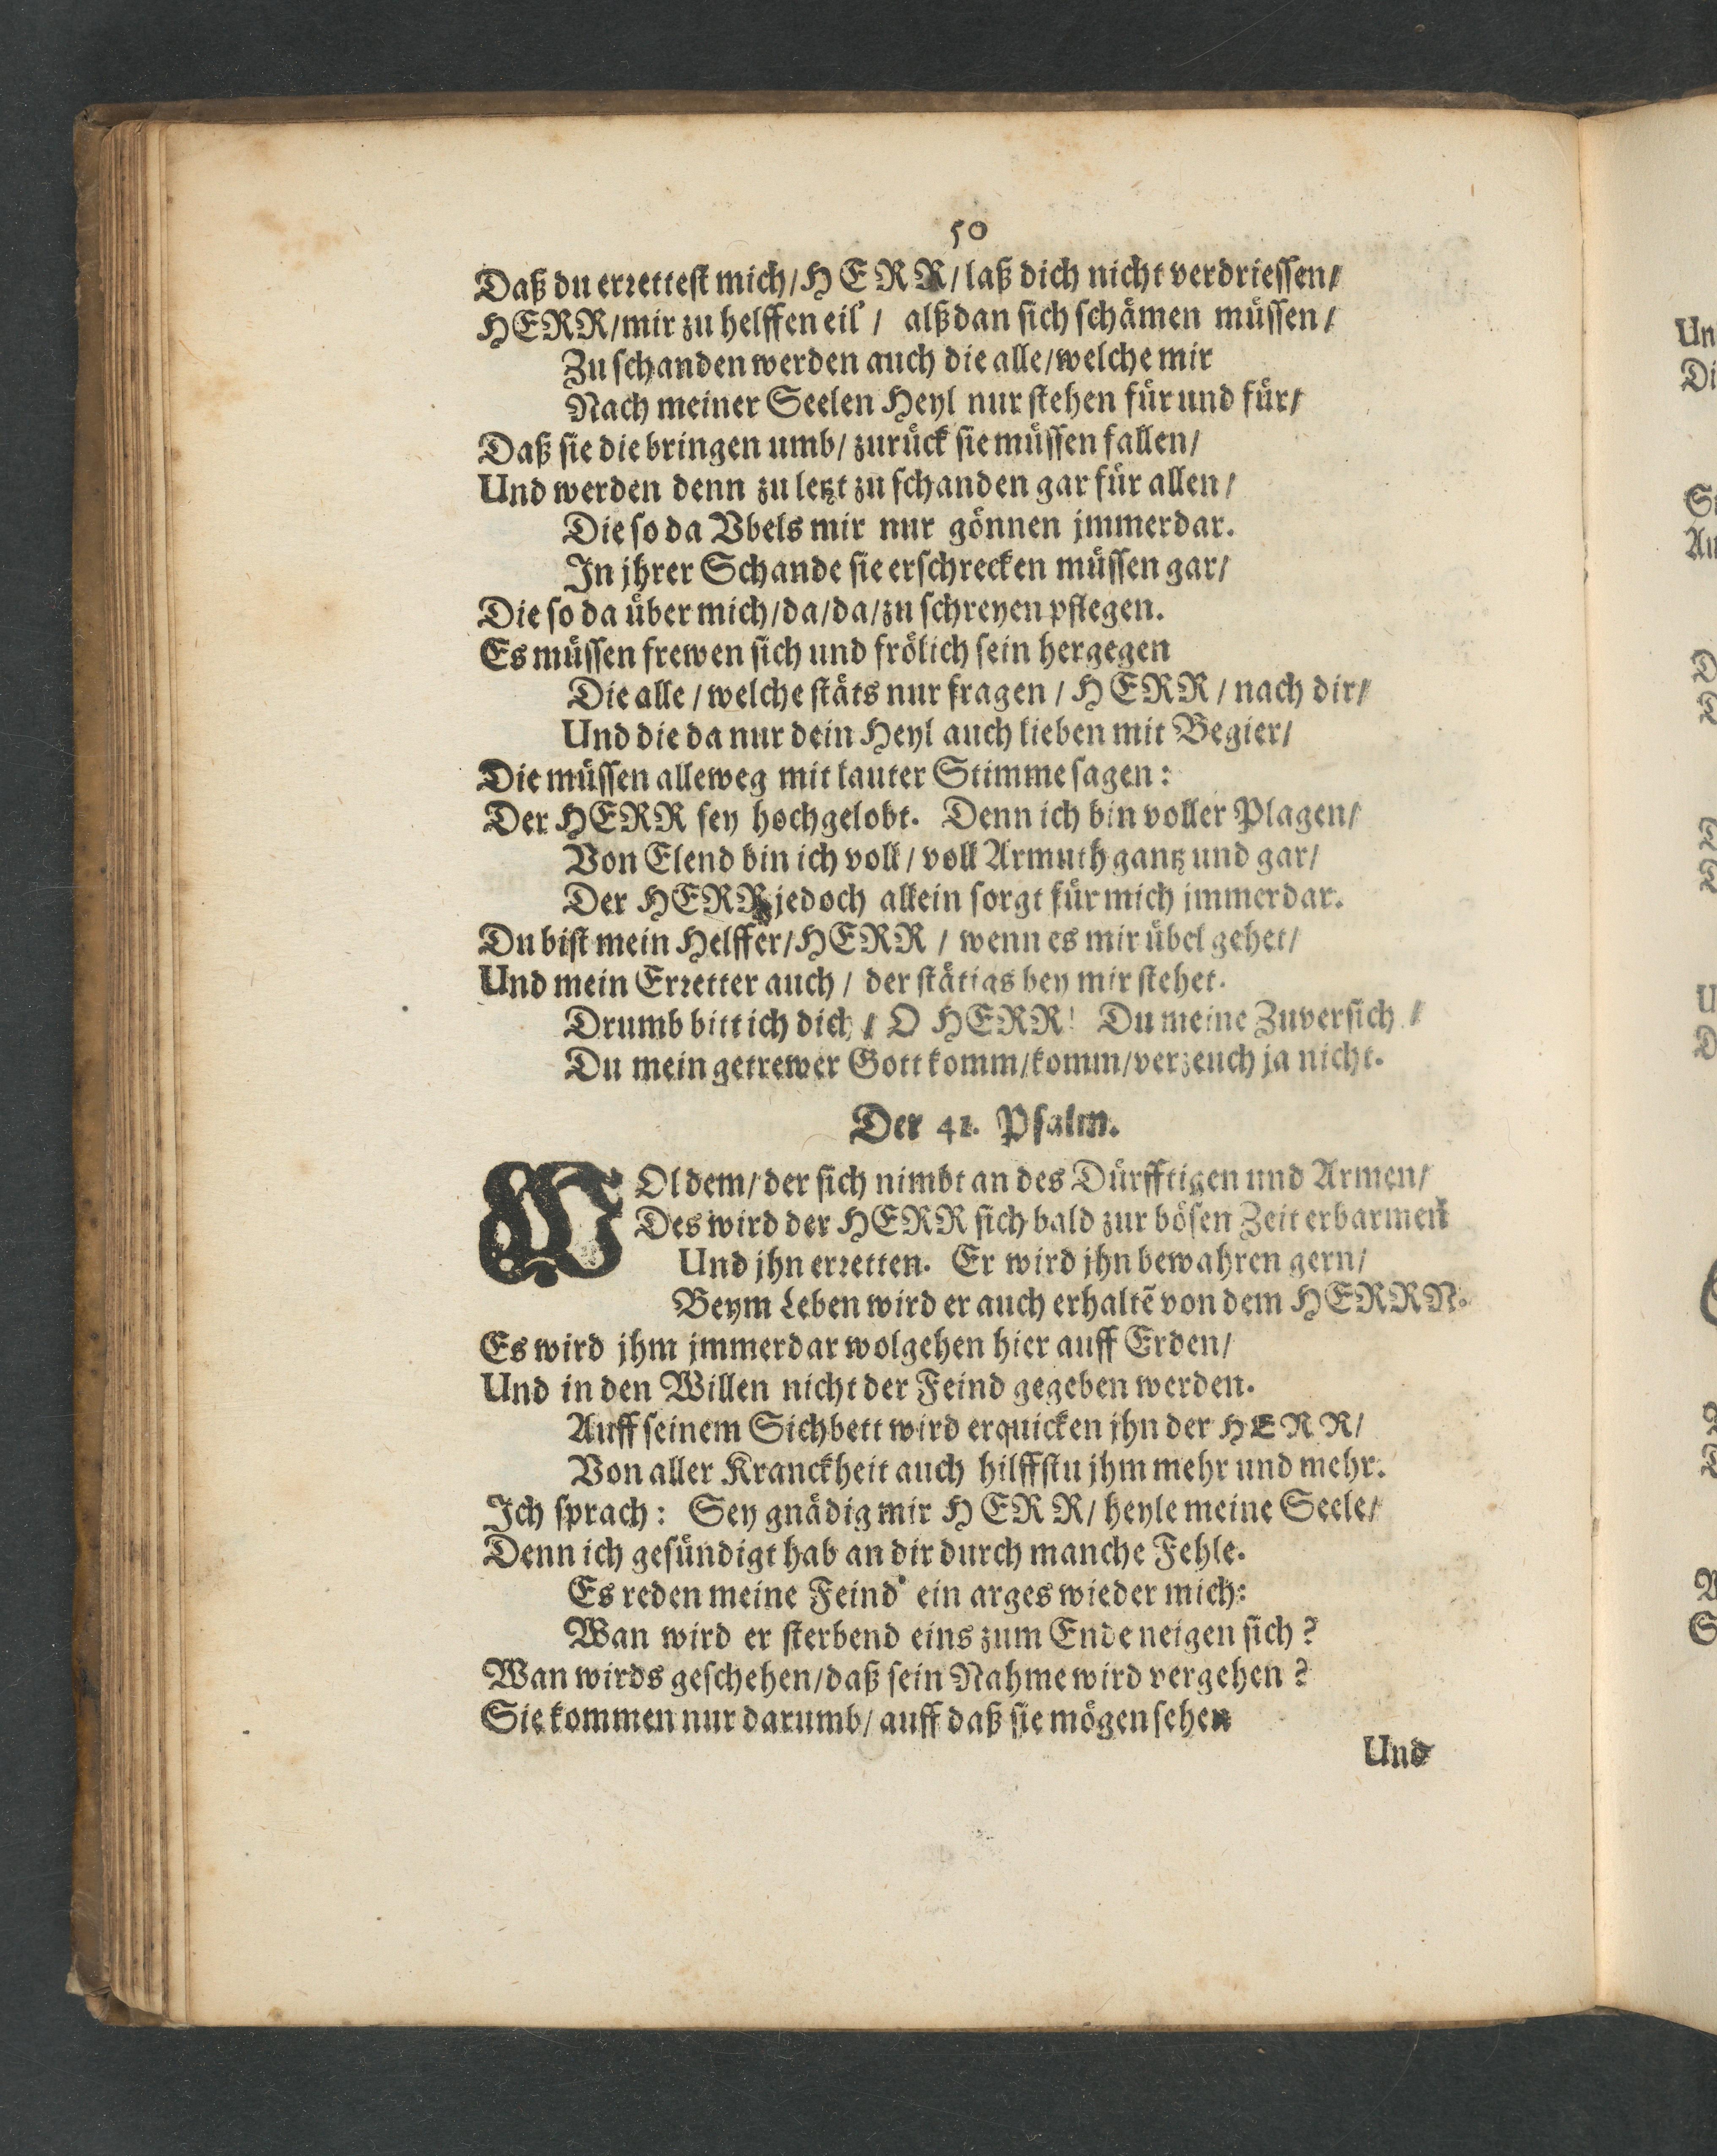 50
Daß du errettest mich/ HERR/ laß dich nicht verdriessen/
HERR/ mir zu helffen eil / alßdan sich schämen müssen/
Zu schanden werden auch die alle/ welche mir
Nach meiner Seelen Heyl nur stehen für und für/
Daß sie die bringen umb/ zurück sie müssen fallen/
Und werden denn zu letzt zu schanden gar für allen/
Die so da Vbels mir nur gönnen jmmerdar.
In jhrer Schande sie erschrecken müssen gar/
Die so da über mich/ da/ da/ zu schreyen pflegen.
Es müssen frewen sich und frölich sein hergegen
Die alle / welche stäts nur fragen / HERR / nach dir/
Und die da nur dein Heyl auch lieben mit Begier/
Die müssen alleweg mit lauter Stimme sagen:
Der HERR sey hochgelobt. Denn ich bin voller Plagen/
Von Elend bin ich voll/ voll Armuth gantz und gar/
Der HERR jedoch allein sorgt für mich jmmerdar.
Du bist mein Helffer/ HERR / wenn es mir übel gehet/
Und mein Erretter auch / der stätigs bey mir stehet.
Drumb bitt ich dich / O HERR! Du meine Zuversich /
Du mein getrewer Gott komm/ komm/ verzeuch ja nicht.
Der 41. Psalm.
WOl dem/ der sich nimbt an des Dürfftigen und Armen/
Des wird der HERR sich bald zur bösen Zeit erbarmen
Und jhn erretten. Er wird jhn bewahren gern/
Beym Leben wird er auch erhaltẽ von dem HERRN.
Es wird jhm jmmerdar wolgehen hier auff Erden/
Und in den Willen nicht der Feind gegeben werden.
Auff seinem Sichbett wird erquicken jhn der HERR/
Von aller Kranckheit auch hilffstu jhm mehr und mehr.
Ich sprach: Sey gnädig mir HERR/ heyle meine Seele/
Denn ich gesündigt hab an dir durch manche Fehle.
Es reden meine Feind' ein arges wieder mich:
Wan wird er sterbend eins zum Ende neigen sich?
Wan wirds geschehen/ daß sein Nahme wird vergehen?
Sie kommen nur darumb/ auff daß sie mögen sehen
Und